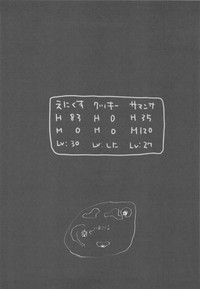 えにくす クッキー サマンサ
H 83 H 0 H 35
M 0 M 0 M120
Lv:30 Lv.した Lv:27